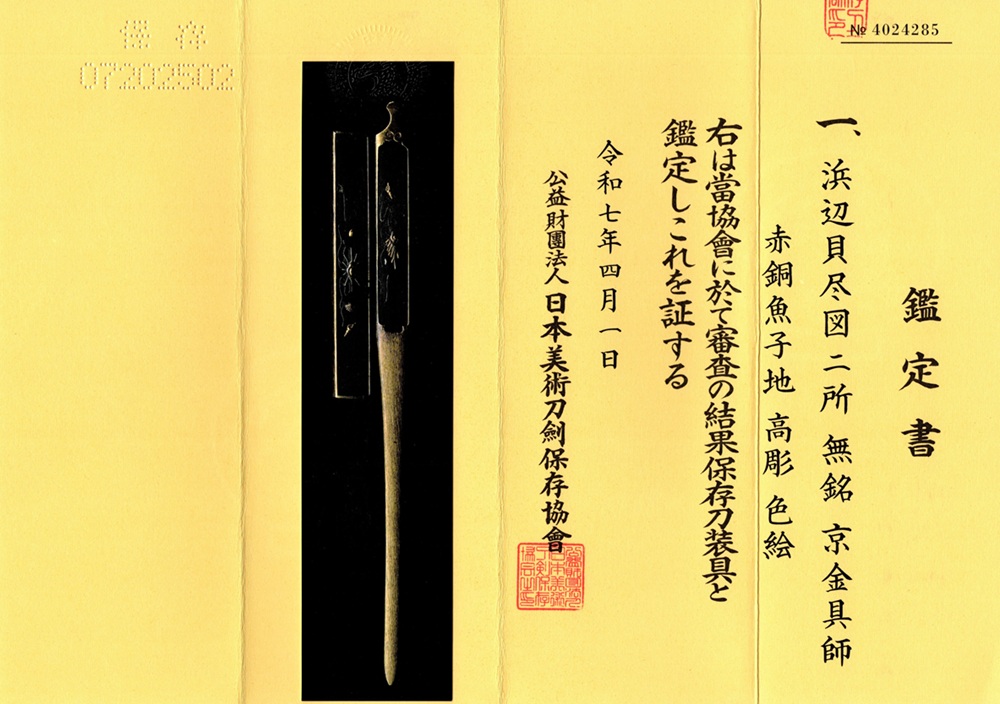 № 4024285
鑑定書
一、浜辺貝尽図二所 無銘 京金具師
赤銅魚子地 高彫 色絵
右は當協會に於て審査の結果保存刀装具と
鑑定しこれを証する
令和七年四月一日
公益財團法人 日本美術刀劍保存協會
保存
07202502